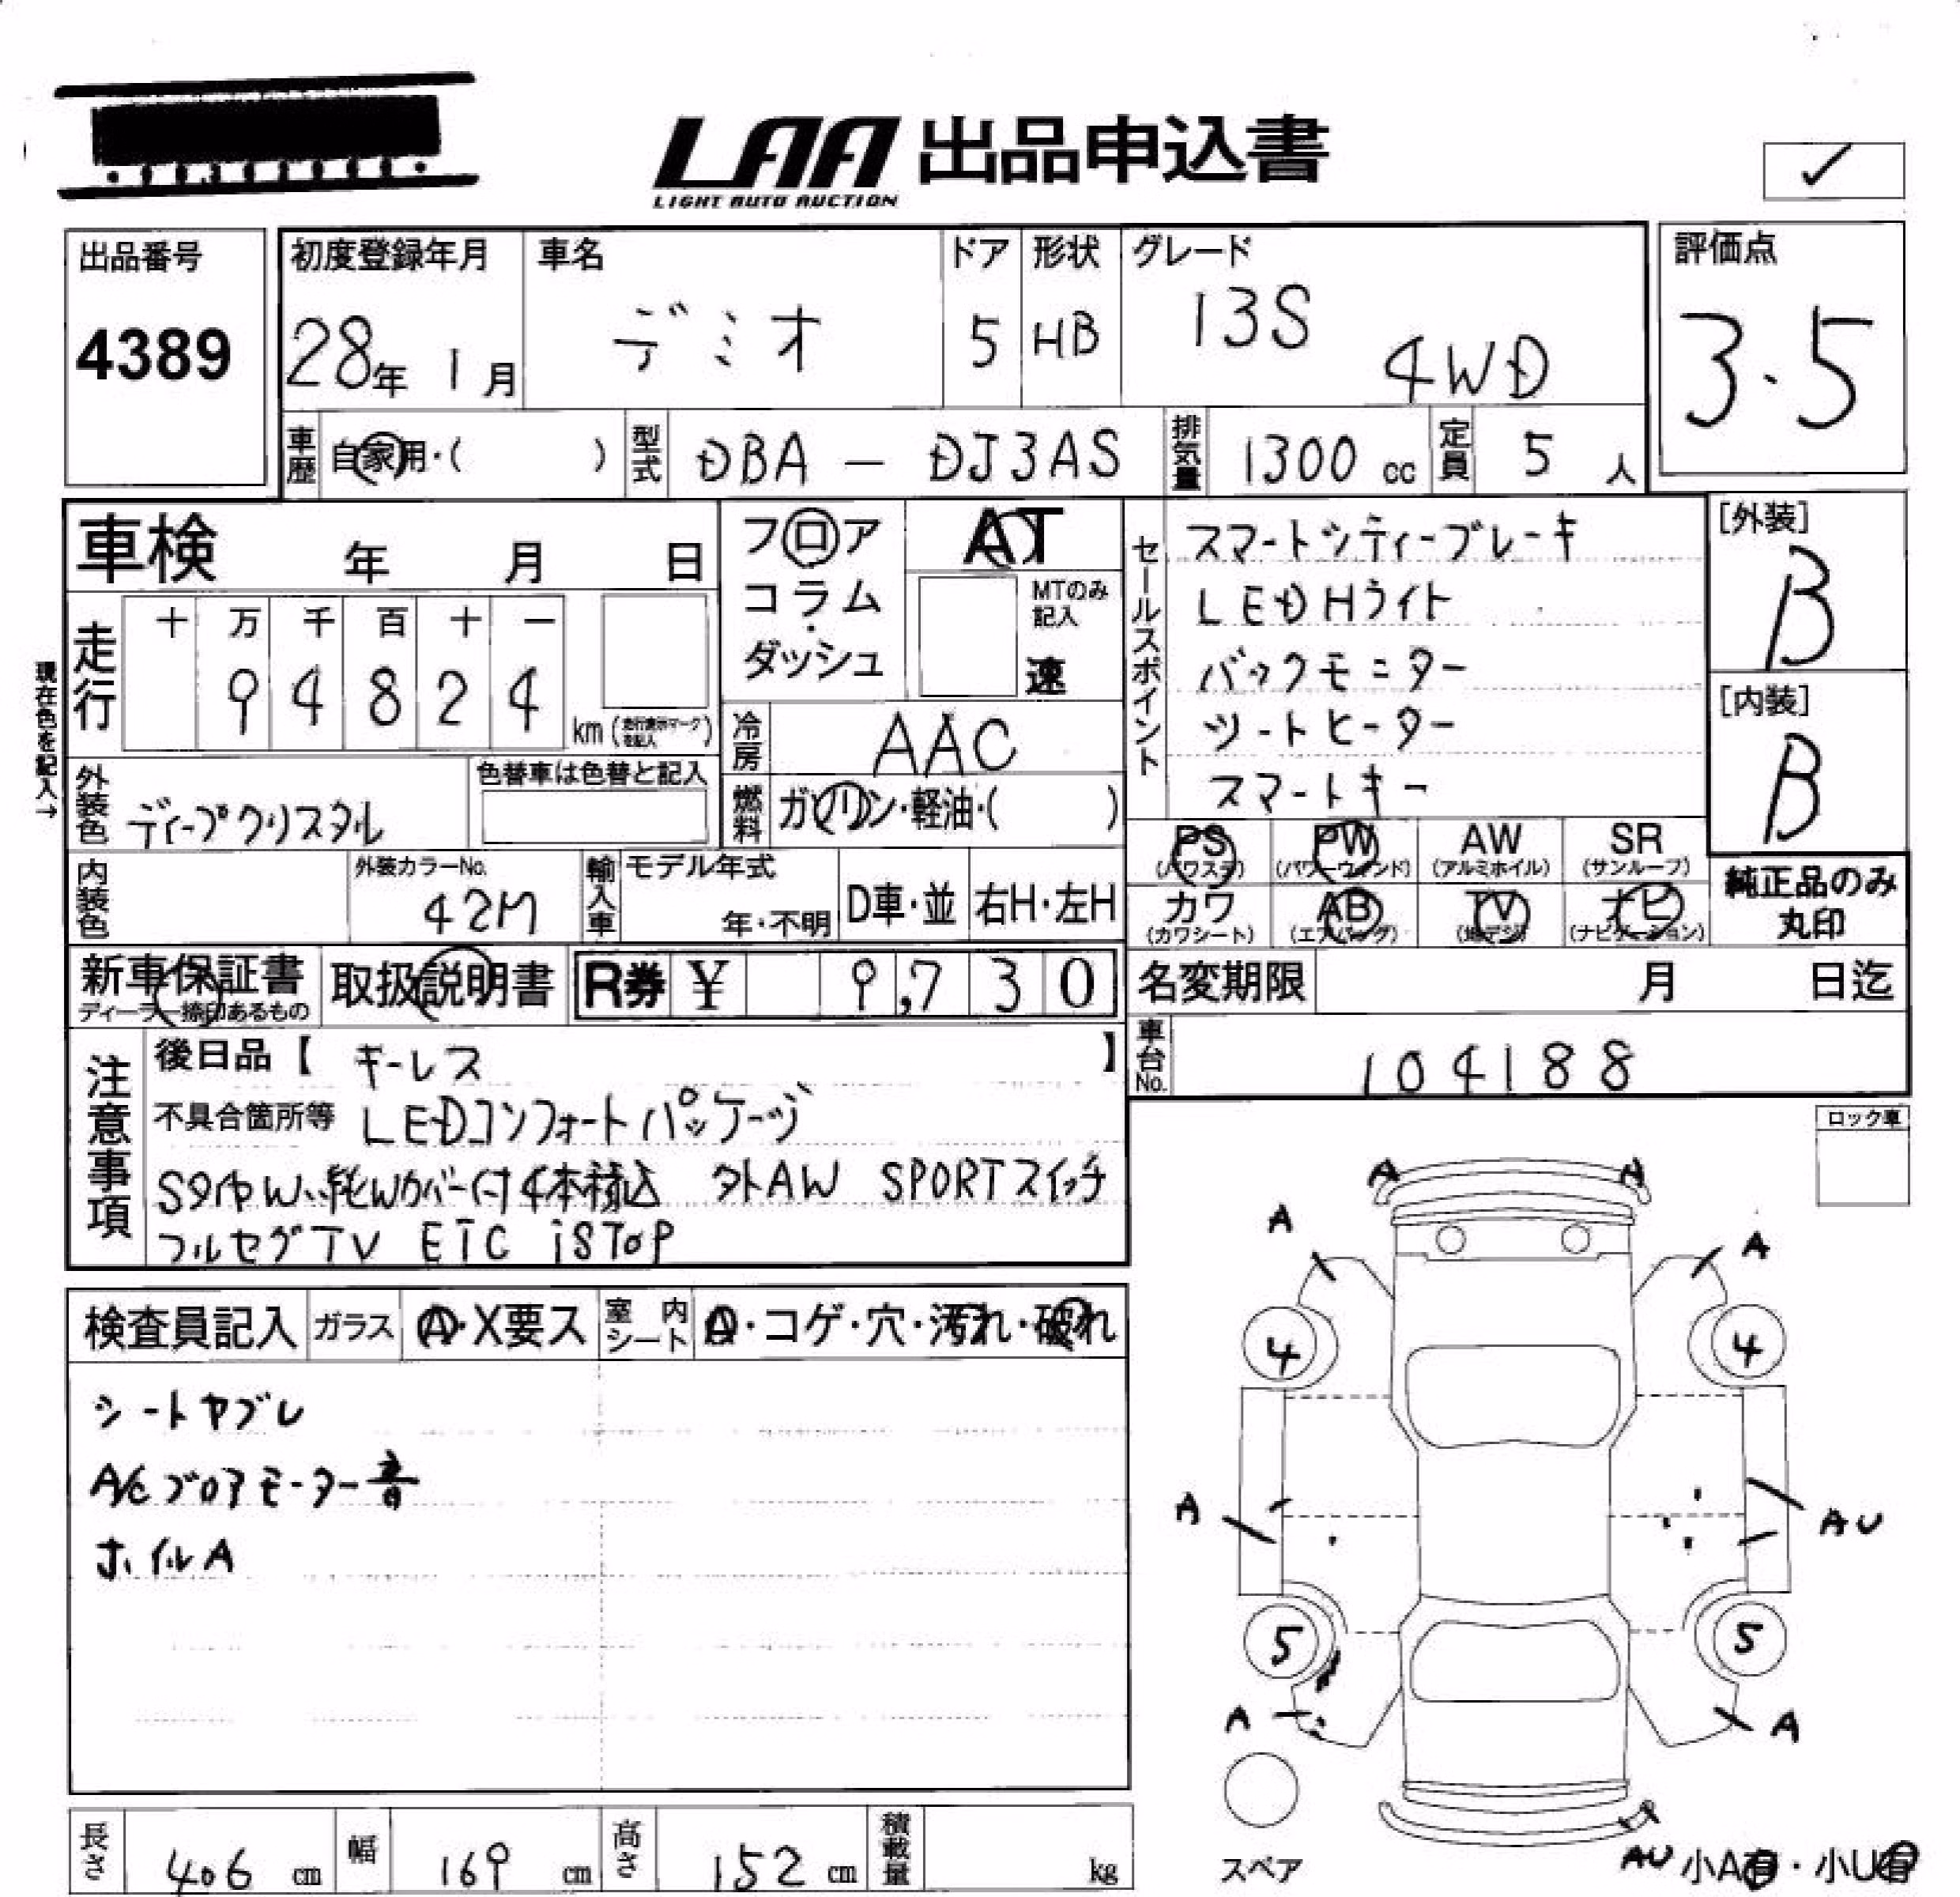 LAA 出品申込書
LIGHT AUTO AUCTION
出品番号
4389
初度登録年月
28年 1月
車名
デミオ
ドア
5
形状
HB
グレード
13S
4WD
評価点
3.5
車歴 自家用・( )
型式 DBA － DJ3AS
排気量 1300 cc
定員 5 人
車検 年 月 日
フロア
コラム
・
ダッシュ
AT
MTのみ
記入
速
セールスポイント
スマートシティーブレーキ
LED Hライト
バックモニター
シートヒーター
スマートキー
[外装]
B
[内装]
B
現在色を記入→
走行
十 万 千 百 十 一
9 4 8 2 4
km (走行表示マークを記入)
冷房 AAC
燃料 ガソリン・軽油・( )
外装色 ディープクリスタル
色替車は色替と記入
内装色
外装カラーNo.
42M
輸入車
モデル年式
年・不明
D車・並
右H・左H
PS
(パワステ)
PW
(パワーウィンド)
AW
(アルミホイル)
SR
(サンルーフ)
カワ
(カワシート)
AB
(エアバッグ)
TV
(地デジ)
ナビ
(ナビゲーション)
純正品のみ
丸印
新車保証書
ディーラー捺印あるもの
取扱説明書
R券 ¥ 9,730
名変期限 月 日迄
車台No. 104188
注意事項
後日品【 キーレス 】
不具合箇所等 LEDコンフォートパッケージ
Sタイヤ W カバー付4本積込 外AW SPORTスイッチ
フルセグTV ETC iSTOP
ロック車
検査員記入
ガラス A・X要ス
室内シート A・コゲ・穴・汚れ・破れ
シートヤブレ
A/Cブロアモーター音
ホイルA
A A
A A
4 4
A AU
5 5
A A
スペア
AU 小A有・小U有
長さ 406 cm
幅 169 cm
高さ 152 cm
積載量 kg